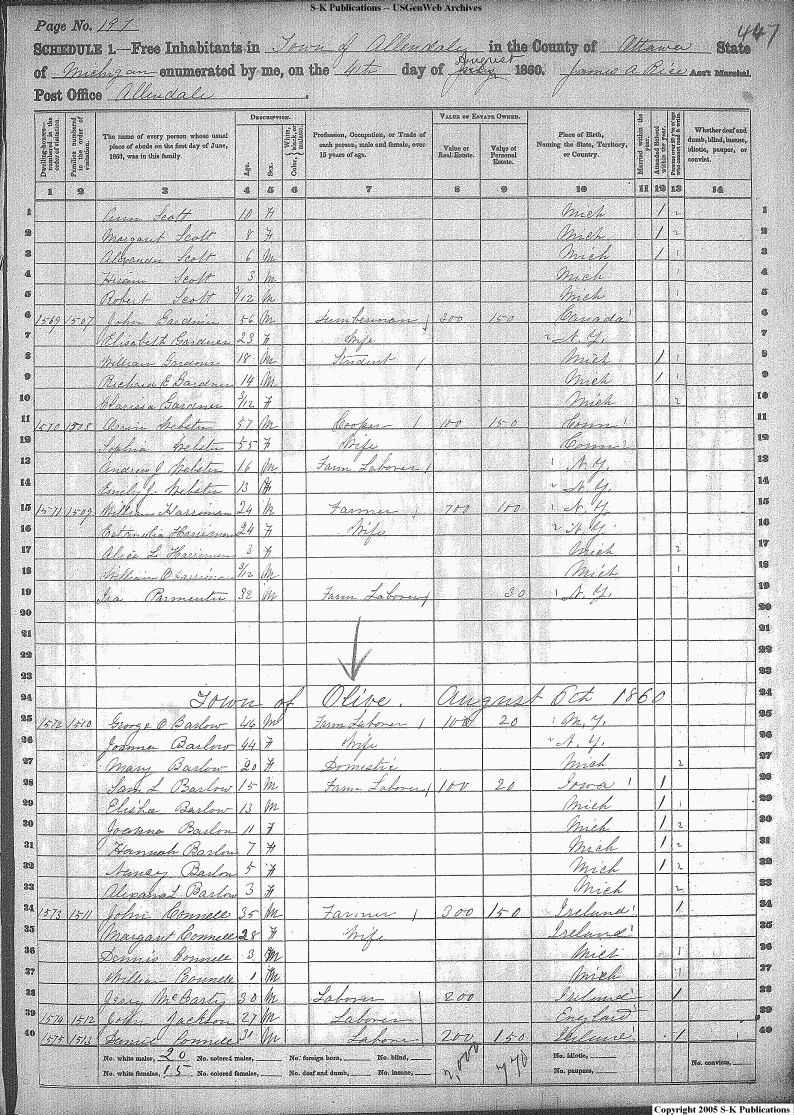 S-K Publications -- USGenWeb Archives
Page No. 197
447
SCHEDULE 1.—Free Inhabitants in Town of Allendale in the County of Ottawa State
of Michigan enumerated by me, on the 4th day of July August 1860. James A Rice Ass't Marshal.
Post Office Allendale.
DESCRIPTION. VALUE OF ESTATE OWNED.
Dwelling-houses numbered in the order of visitation. Families numbered in the order of visitation. The name of every person whose usual place of abode on the first day of June, 1860, was in this family. Age. Sex. Color, White, black, or mulatto. Profession, Occupation, or Trade of each person, male and female, over 15 years of age. Value of Real Estate. Value of Personal Estate. Place of Birth, Naming the State, Territory, or Country. Married within the year. Attended School within the year. Persons over 20 y'rs of age who cannot read & write. Whether deaf and dumb, blind, insane, idiotic, pauper, or convict.
1 2 3 4 5 6 7 8 9 10 11 12 13 14
1 Ann Scott 10 F Mich 1 2 1
2 Margaret Scott 8 F Mich 1 2 2
3 Alexander Scott 6 M Mich 1 1 3
4 Hiram Scott 3 M Mich 1 4
5 Robert Scott 3/12 M Mich 1 5
6 1569 1507 John Gardner 56 M Lumberman 200 150 Canada 6
7 Elisabeth Gardner 23 F Wife N.Y. 7
8 William Gardner 18 M Student Mich 1 1 8
9 Richard E Gardner 14 M Mich 1 1 9
10 Clarissa Gardner 3/12 F Mich 2 10
11 1570 1508 Webster 57 M Cooper 100 150 Conn 11
12 Sophia Webster 55 F Wife Conn 12
13 Andrew J Webster 16 M Farm Laborer N.Y. 13
14 Emily J. Webster 13 F N.Y. 14
15 1571 1509 William Harriman 24 M Farmer 700 100 N.Y. 15
16 Harriman 24 F Wife N.Y. 16
17 Alice L Harriman 3 F Mich 2 17
18 William O Harriman 3/12 M Mich 1 18
19 Ira Parmenter 32 M Farm Laborer 30 N.Y. 19
20 20
21 21
22 22
23 23
24 Town of Olive. August 6th 1860 24
25 1572 1510 George O Barlow 46 M Farm Laborer 100 20 N.Y. 25
26 Joanna Barlow 44 F Wife N.Y. 26
27 Mary Barlow 20 F Domestic Mich 2 27
28 Sam L Barlow 15 M Farm Laborer 100 20 Iowa 1 28
29 Elisha Barlow 13 M Mich 1 1 29
30 Joanna Barlow 11 F Mich 1 2 30
31 Hannah Barlow 7 F Mich 1 2 31
32 Nancy Barlow 5 F Mich 1 2 32
33 Barlow 3 F Mich 2 33
34 1573 1511 John Connell 35 M Farmer 300 150 Ireland 1 34
35 Margaret Connell 28 F Wife Ireland 35
36 Dennis Connell 3 M Mich 1 36
37 William Connell 1 M Mich 1 37
38 McCarty 30 M Laborer 200 Ireland 1 38
39 1574 1512 John Jackson 27 M Laborer England 39
40 1575 1513 Connell 31 M Labor 200 150 Ireland 1 40
No. white males, 20 No. colored males, No. foreign born, No. blind, 2,000 770 No. idiotic, No. convicts,
No. white females, 15 No. colored females, No. deaf and dumb, No. insane, No. paupers,
Copyright 2005 S-K Publications